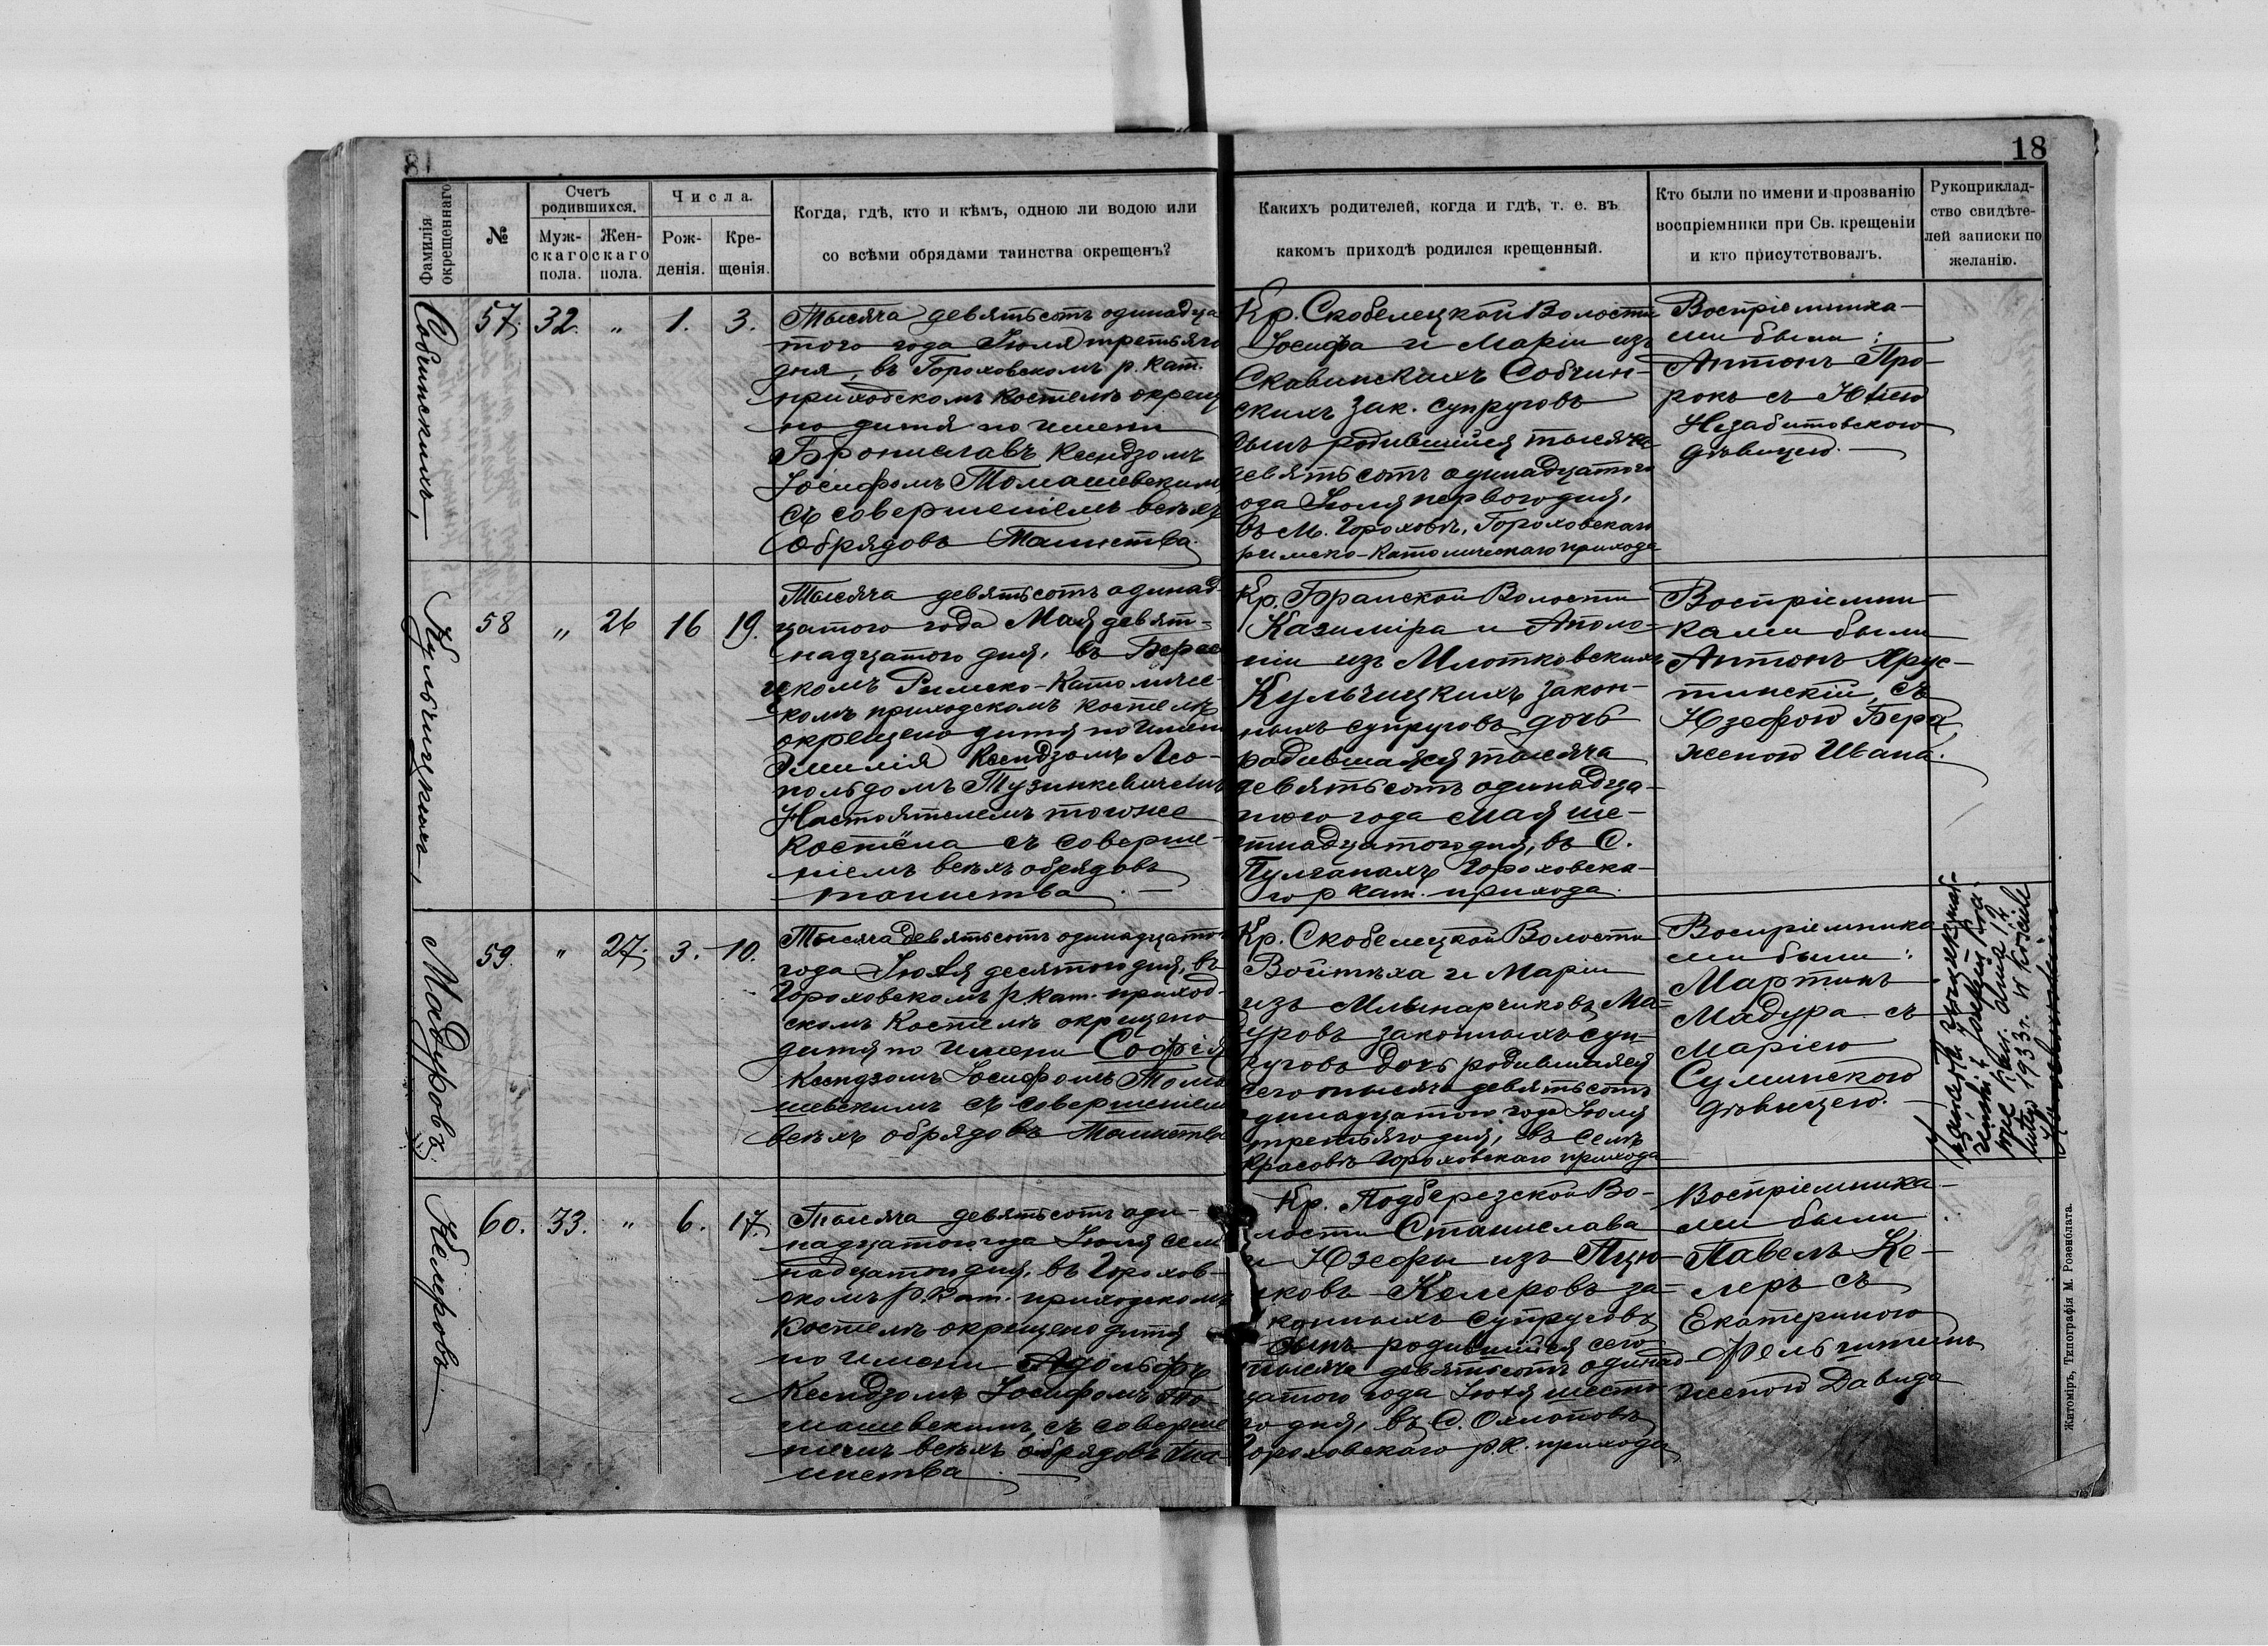 18
Фамилія
окрещеннаго
№
Счетъ
родившихся.
Муж-
скаго
пола.
Жен-
скаго
пола.
Числа.
Рож-
денія.
Кре-
щенія.
Когда, гдѣ, кто и кѣмъ, одною ли водою или
со всѣми обрядами таинства окрещенъ?
Какихъ родителей, когда и гдѣ, т. е. въ
какомъ приходѣ родился крещенный.
Кто были по имени и прозванію
воспріемники при Св. крещеніи
и кто присутствовалъ.
Рукоприклад-
ство свидѣте-
лей записки по
желанію.
Собчинскихъ,
57. 32. „ 1. 3.
Тысяча девятьсотъ одинадца
того года Іюля третьяго
дня, въ Гороховскомъ р. кат.
приходскомъ костелѣ окрещ
но дитя по имени
Брониславъ Ксендзомъ
Іосифомъ Томашевским
съ совершеніемъ всѣхъ
обрядовъ Таинства.
Кр. Скобелецкой Волости
Іосифа и Маріи изъ
Скавинскихъ Собчин-
скихъ зак. супруговъ
сынъ родившійся тысяча
девятьсотъ одинадцатого
года Іюля первого дня,
въ М. Гороховѣ, Гороховскаго
римско-католическаго прихода
Воспріемника-
ми были:
Антонъ Про-
рокъ съ
Незабитовскою
дѣвицею.
Кульчицкихъ,
58 „ 26 16 19.
Тысяча девятьсотъ одинад-
цатого года Мая девят-
надцатого дня, въ Берес
чкомъ Римско-Католичес-
комъ приходскомъ костелѣ
окрещено дитя по имени
Эмилія Ксендзомъ Лео-
польдомъ Тузинкевичемъ
Настоятелемъ тогоже
костёла съ соверше-
ніемъ всѣхъ обрядовъ
таинства.
Кр. Бранской Волости
Казиміра и Аполо-
ніи изъ Млотковскихъ
Кульчицкихъ закон-
ныхъ супруговъ дочь
родившаяся тысяча
девятьсотъ одинадца-
того года Мая ше-
стнадцатого дня, въ С.
Пулганахъ Гороховска-
го р кат. прихода.
Воспріемни-
ками были
Антонъ Хрус-
тинскій, съ
Юзефою Бера
женою Ивана.
Мадуровъ.
59. „ 27. 3. 10.
Тысяча девятьсотъ одинадцато
года Іюля десятого дня, въ
Гороховскомъ р кат. приход-
скомъ Костелѣ окрещено
дитя по имени Софія
Ксендзомъ Іосифомъ Тома
шевскимъ съ совершеніем
всѣхъ обрядовъ Таинства
Кр. Скобелецкой Волости
Войтѣха и Маріи
изъ Млынарчиковъ Ма-
дуровъ законныхъ суп-
руговъ дочь родившаяся
сего тысяча девятьсотъ
одинадцатого года Іюля
третьяго дня, въ селѣ
Красовъ Гороховскаго прихода
Воспріемника
ми были:
Мартинъ
Мадура съ
Маріею
Сулинскою
дѣвицею.
1933 r. w kościele
Келеровъ.
60. 33. „ 6. 17.
Тысяча девятьсотъ оди-
надцатого года Іюля сем
надцатого дня, въ Горохов-
скомъ р. Кат. приходскомъ
Костелѣ окрещено дитя
по имени Адольфъ
Ксендзомъ Іосифомъ То-
машевскимъ, съ соверше
ніемъ всѣхъ обрядовъ Та-
инства.
Кр. Подберезской Во-
лости Станислава
и Юзефы изъ Пцю-
ковъ Келеровъ за-
конныхъ супруговъ
сынъ родившійся сего
тысяча девятьсотъ одинад-
цатого года Іюля шесто
го дня, въ С.
Гороховскаго р.к. прихода
Воспріемника-
ми были
Павелъ Ке-
леръ съ
Екатериною
женою Давида
Житоміръ, Типографія М. Розенблата.